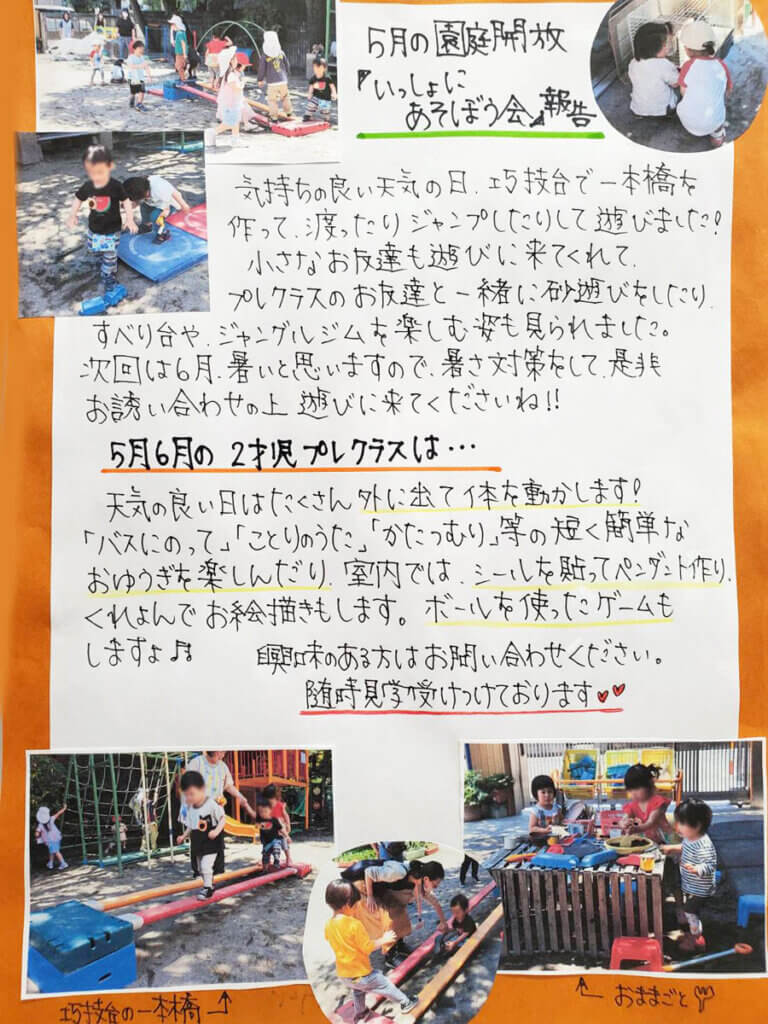 5月の園庭開放
『いっしょに
あそぼう会』報告
気持ちの良い天気の日、巧技台で一本橋を
作って、渡ったりジャンプしたりして遊びました!
小さなお友達も遊びに来てくれて、
プレクラスのお友達と一緒に砂遊びをしたり、
すべり台や、ジャングルジムを楽しむ姿も見られました。
次回は6月、暑いと思いますので、暑さ対策をして、是非
お誘い合わせの上 遊びに来てくださいね!!
5月6月の 2才児プレクラスは…
天気の良い日はたくさん外に出て体を動かします!
「バスにのって」「ことりのうた」「かたつむり」等の短く簡単な
おゆうぎを楽しんだり、室内では、シールを貼ってペンダント作り、
くれよんでお絵描きもします。ボールを使ったゲームも
しますよ♪♬
興味のある方はお問い合わせください。
随時見学受けつけております♥♥
巧技台の一本橋
おままごと